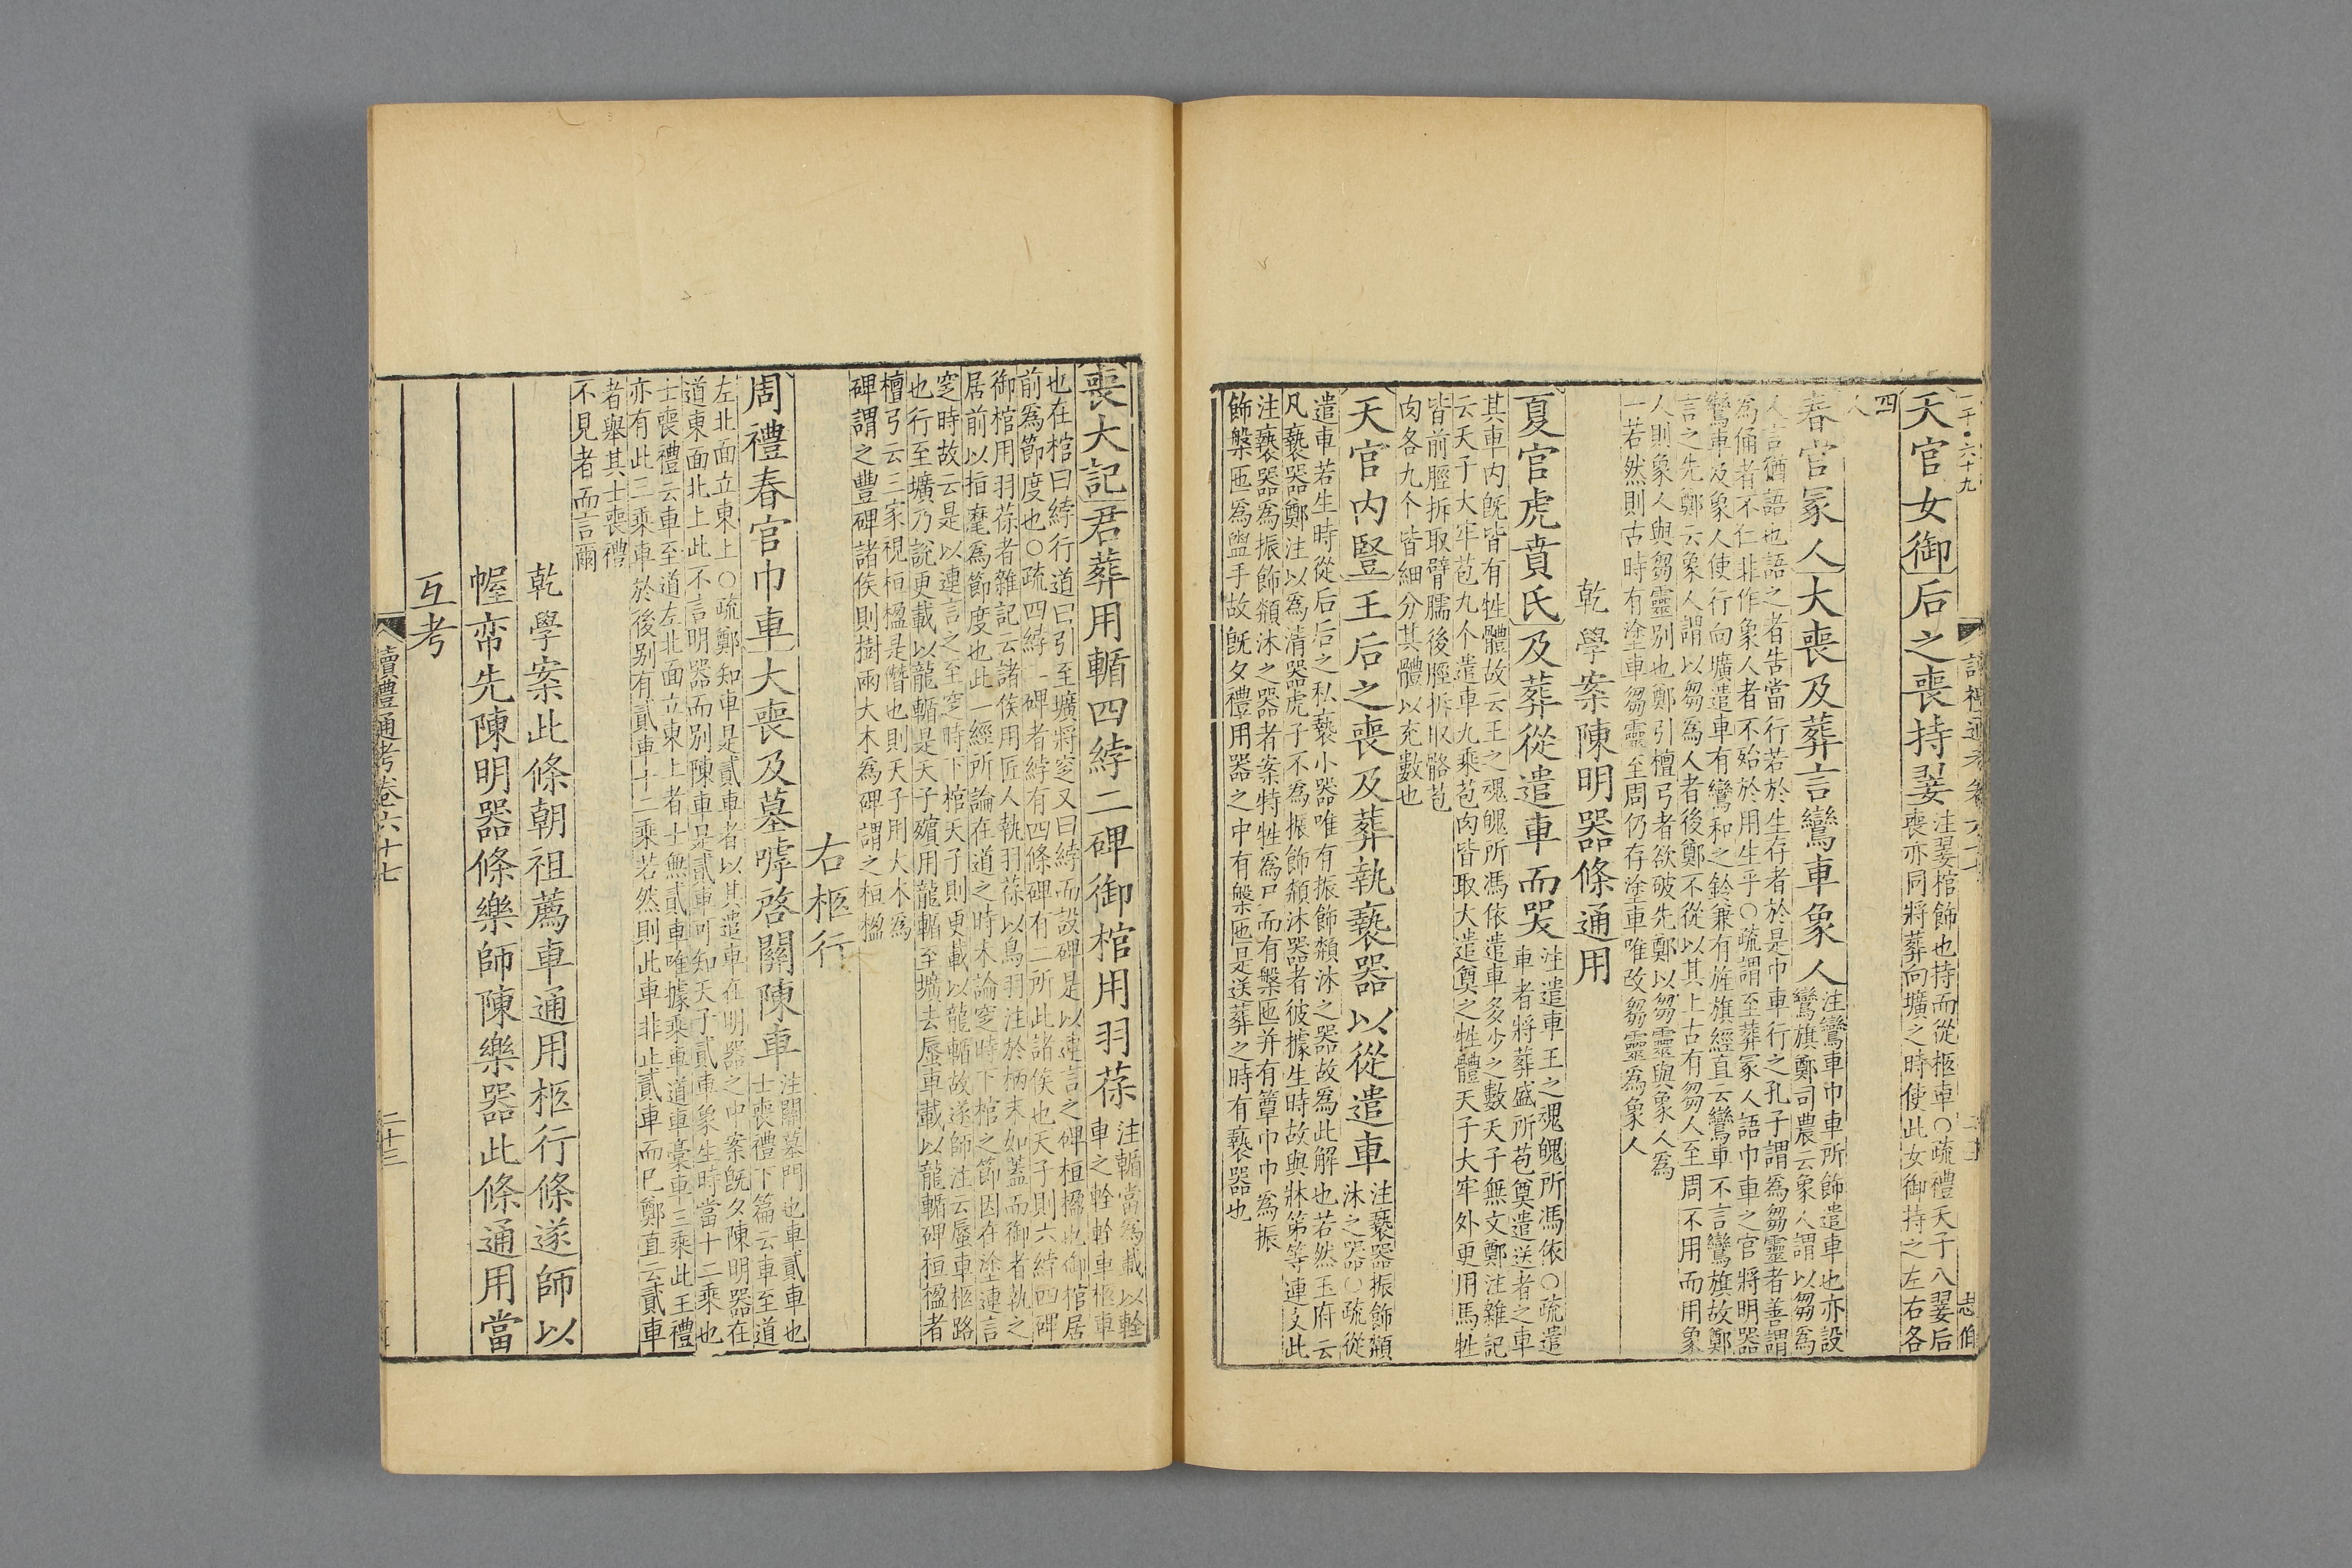 一千·六十九
讀禮通考卷六十七
志伯
天官女御后之喪持翣
注翣棺飾也持而從柩車○疏禮天子八翣后
喪亦同將葬向壙之時使此女御持之左右各
四
人
春官冢人大喪及葬言鸞車象人
注鸞車巾車所飾遣車也亦設
鸞旗鄭司農云象人謂以芻為
人言猶語也語之者告當行若於生存者於是巾車行之孔子謂為芻靈者善謂
為俑者不仁非作象人者不殆於用生乎○疏謂至葬冢人語巾車之官將明器
鸞車及象人使行向壙遣車有鸞和之鈴兼有旌旗經直云鸞車不言鸞旗故鄭
言之先鄭云象人謂以芻為人者後鄭不從以其上古有芻人至周不用而用象
人則象人與芻靈別也鄭引檀弓者欲破先鄭以芻靈與象人為
一若然則古時有塗車芻靈至周仍存塗車唯改芻靈為象人
乾學案陳明器條通用
夏官虎賁氏及葬從遣車而哭
注遣車王之魂魄所馮依○疏遣
車者將葬盛所苞奠遣送者之車
其車內旣皆有牲體故云王之魂魄所馮依遣車多少之數天子無文鄭注雜記
云天子大牢苞九个遣車九乘苞肉皆取大遣奠之牲體天子大牢外更用馬牲
皆前脛拆取臂臑後脛拆取骼苞
肉各九个皆細分其體以充數也
天官內豎王后之喪及葬執褻器以從遣車
注褻器振飾頮
沐之器○疏從
遣車若生時從后后之私褻小器唯有振飾頮沐之器故為此解也若然玉府云
凡褻器鄭注以為清器虎子不為振飾頮沐器者彼據生時故與牀第等連文此
注褻器為振飾頮沐之器者案特牲為尸而有槃匜并有簞巾巾為振
飾槃匜為盥手故旣夕禮用器之中有槃匜是送葬之時有褻器也
喪大記君葬用輴四綍二碑御棺用羽葆
注輴當為載以輇
車之輇輇車柩車
也在棺曰綍行道曰引至壙將窆又曰綍而設碑是以連言之碑桓楹也御棺居
前爲節度也○疏四綍二碑者綍有四條碑有二所此諸侯也天子則六綍四碑
御棺用羽葆者雜記云諸侯用匠人執羽葆以鳥羽注於柄末如蓋而御者執之
居前以指麾爲節度也此一經所論在道之時未論窆時下棺之節因在塗連言
窆時故云是以連言之至窆時下棺天子則更載以龍輴故遂師注云蜃車柩路
也行至壙乃說更載以龍輴是天子殯用龍輴至壙去蜃車載以龍輴碑桓楹者
檀弓云三家視桓楹是僭也則天子用大木爲
碑謂之豐碑諸侯則樹兩大木爲碑謂之桓楹
右柩行
周禮春官巾車大喪及墓嘑啓關陳車
注關墓門也車貳車也
士喪禮下篇云車至道
左北面立東上○疏鄭知車是貳車者以其遣車在明器之中案旣夕陳明器在
道東面北上此不言明器而別陳車是貳車可知天子貳車象生時當十二乘也
士喪禮云車至道左北面立東上者士無貳車唯據乘車道車槀車三乘此王禮
亦有此三乘車於後別有貳車十二乘若然則此車非止貳車而已鄭直云貳車
者舉其士喪禮
不見者而言爾
乾學案此條朝祖薦車通用柩行條遂師以
幄帟先陳明器條樂師陳樂器此條通用當
互考
讀禮通考卷六十七
二十三